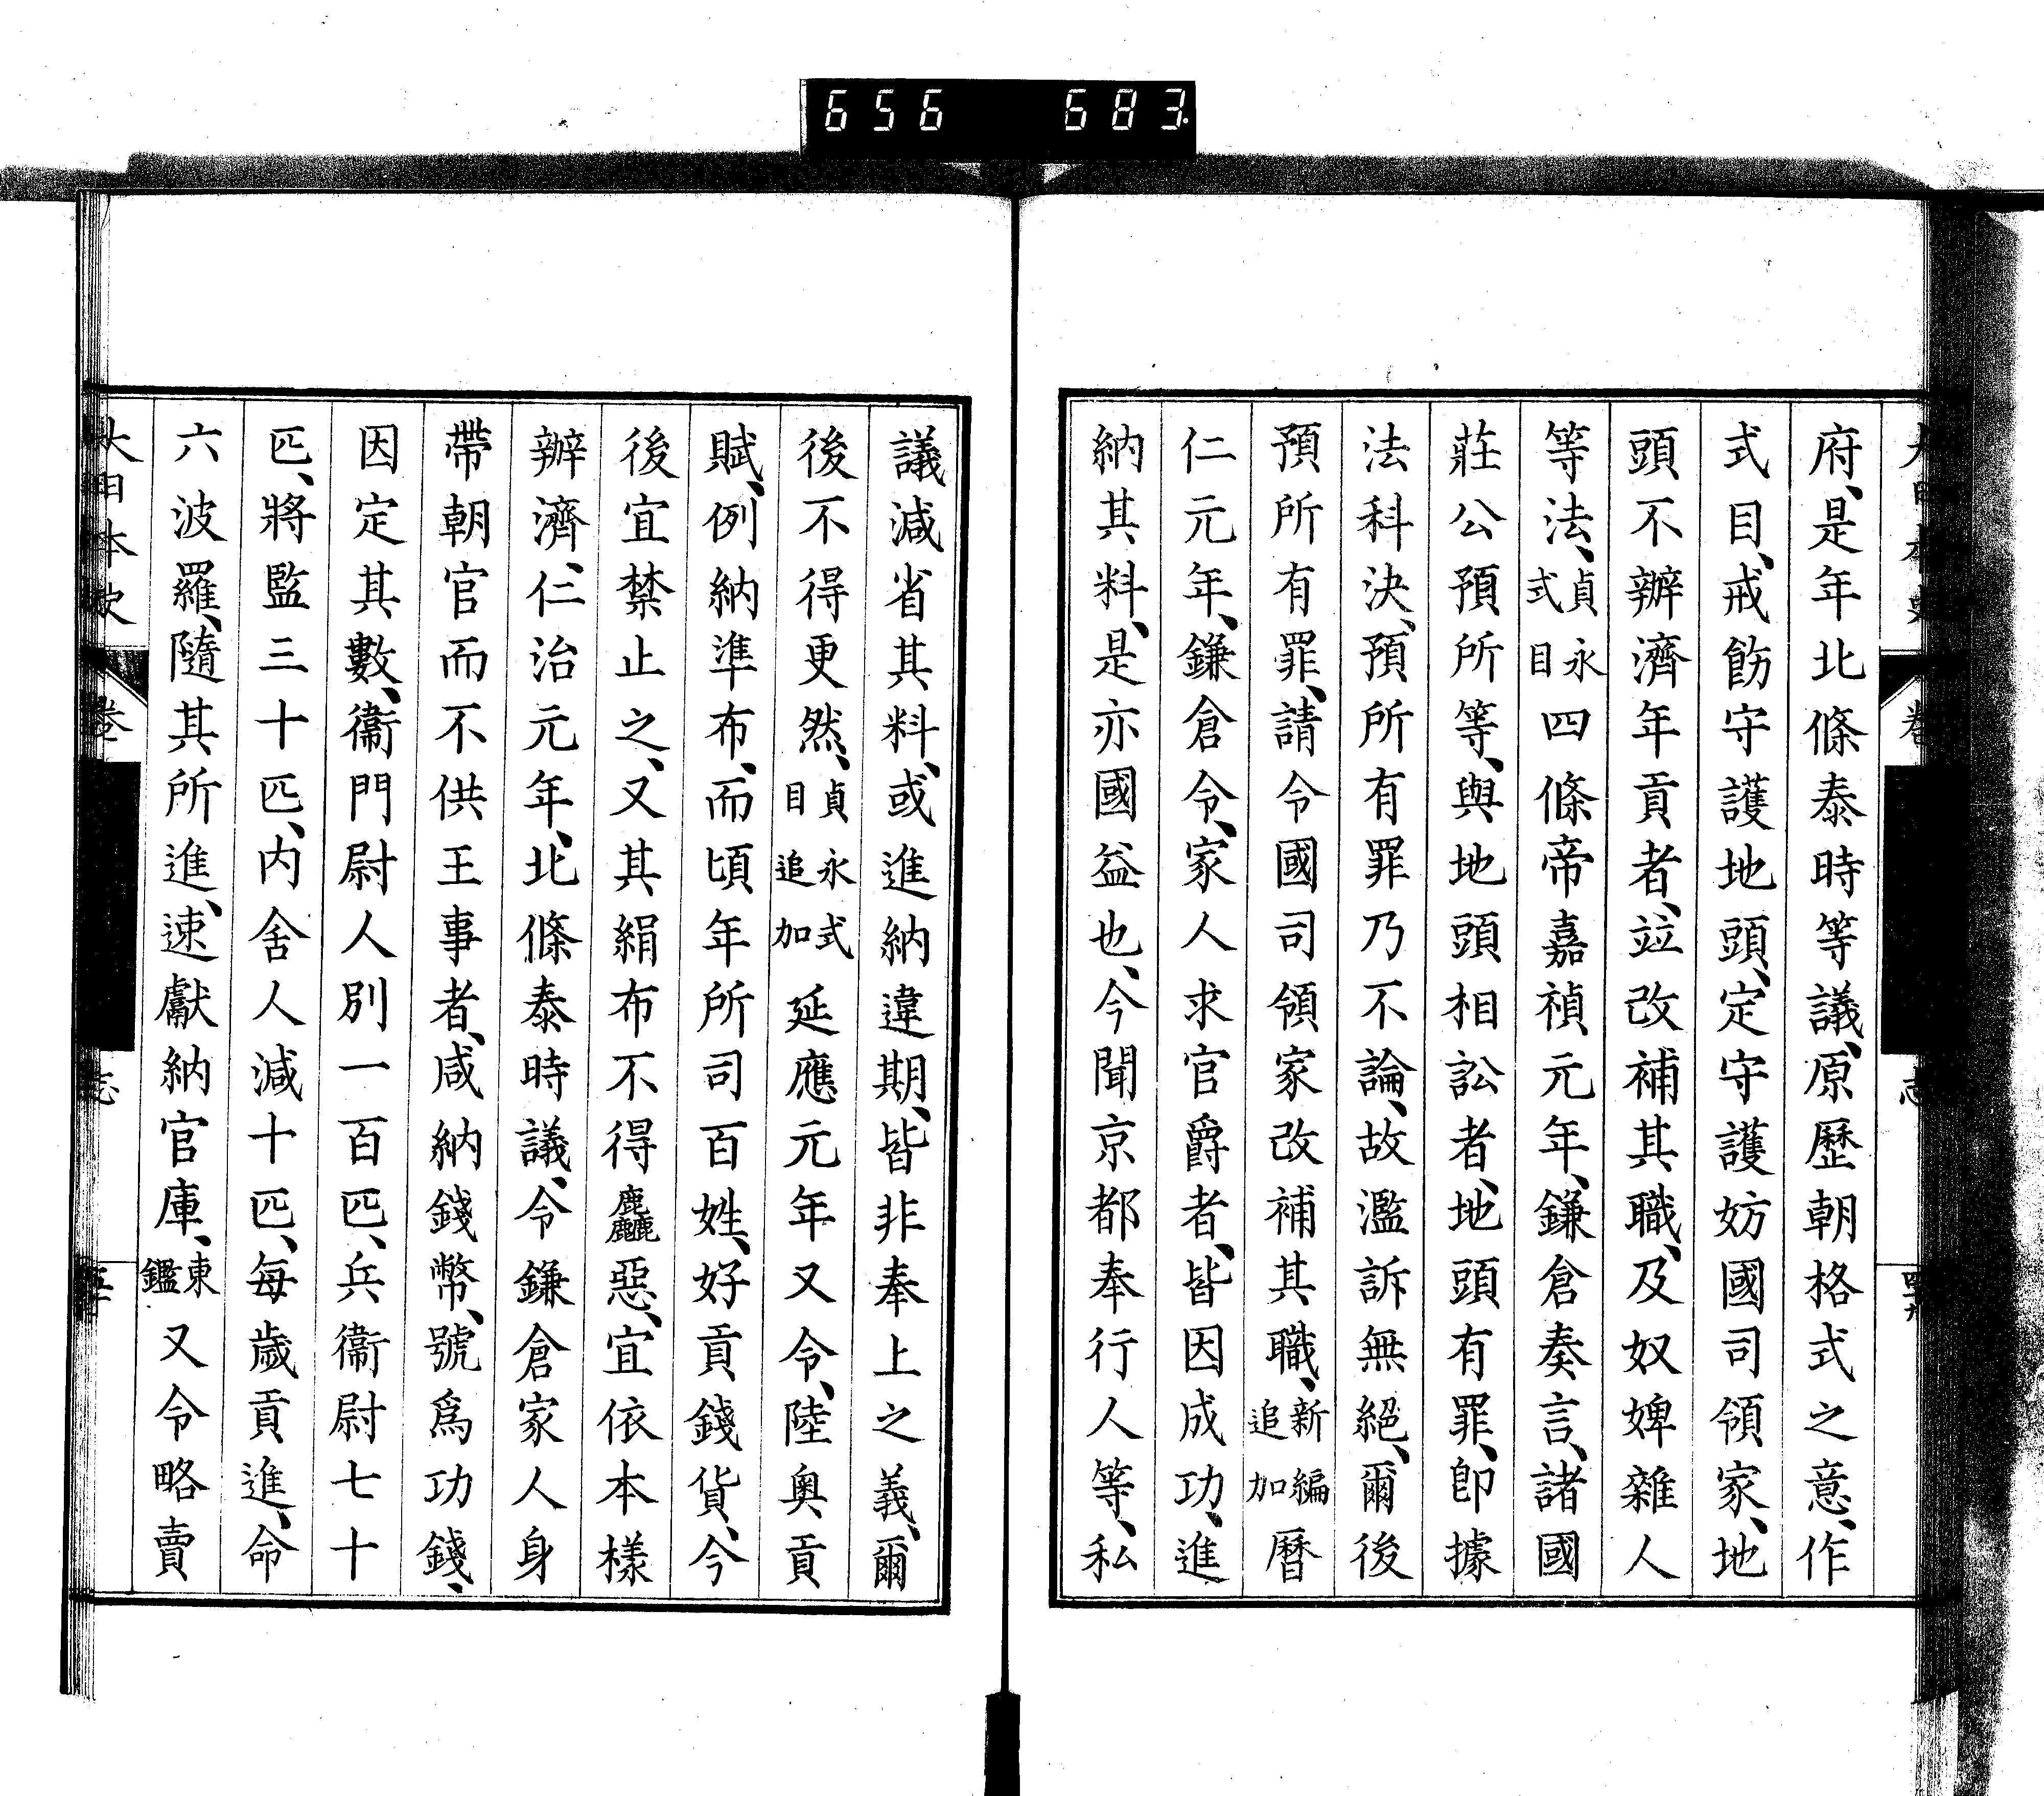 656 683
府、是年北條泰時等議、原歷朝格式之意、作
式目、戒飭守護地頭、定守護妨國司領家、地
頭不辨濟年貢者、竝改補其職、及奴婢雜人
等法、貞永式目四條帝嘉禎元年、鎌倉奏言、諸國
莊公預所等、與地頭相訟者、地頭有罪、卽據
法科決、預所有罪乃不論、故濫訴無絕、爾後
預所有罪、請令國司領家改補其職、新編追加曆
仁元年、鎌倉令、家人求官爵者、皆因成功、進
納其料、是亦國益也、今聞京都奉行人等、私
議減省其料、或進納違期、皆非奉上之義、爾
後不得更然、貞永式目追加延應元年又令、陸奥貢
賦、例納準布、而頃年所司百姓、好貢錢貨、今
後宜禁止之、又其絹布不得麤惡、宜依本樣
辨濟、仁治元年、北條泰時議、令鎌倉家人身
帶朝官而不供王事者、咸納錢幣、號爲功錢、
因定其數、衞門尉人別一百匹、兵衞尉七十
匹、將監三十匹、内舍人減十匹、每歲貢進、命
六波羅、隨其所進、速獻納官庫、東鑑又令略賣
大日本史 卷 志